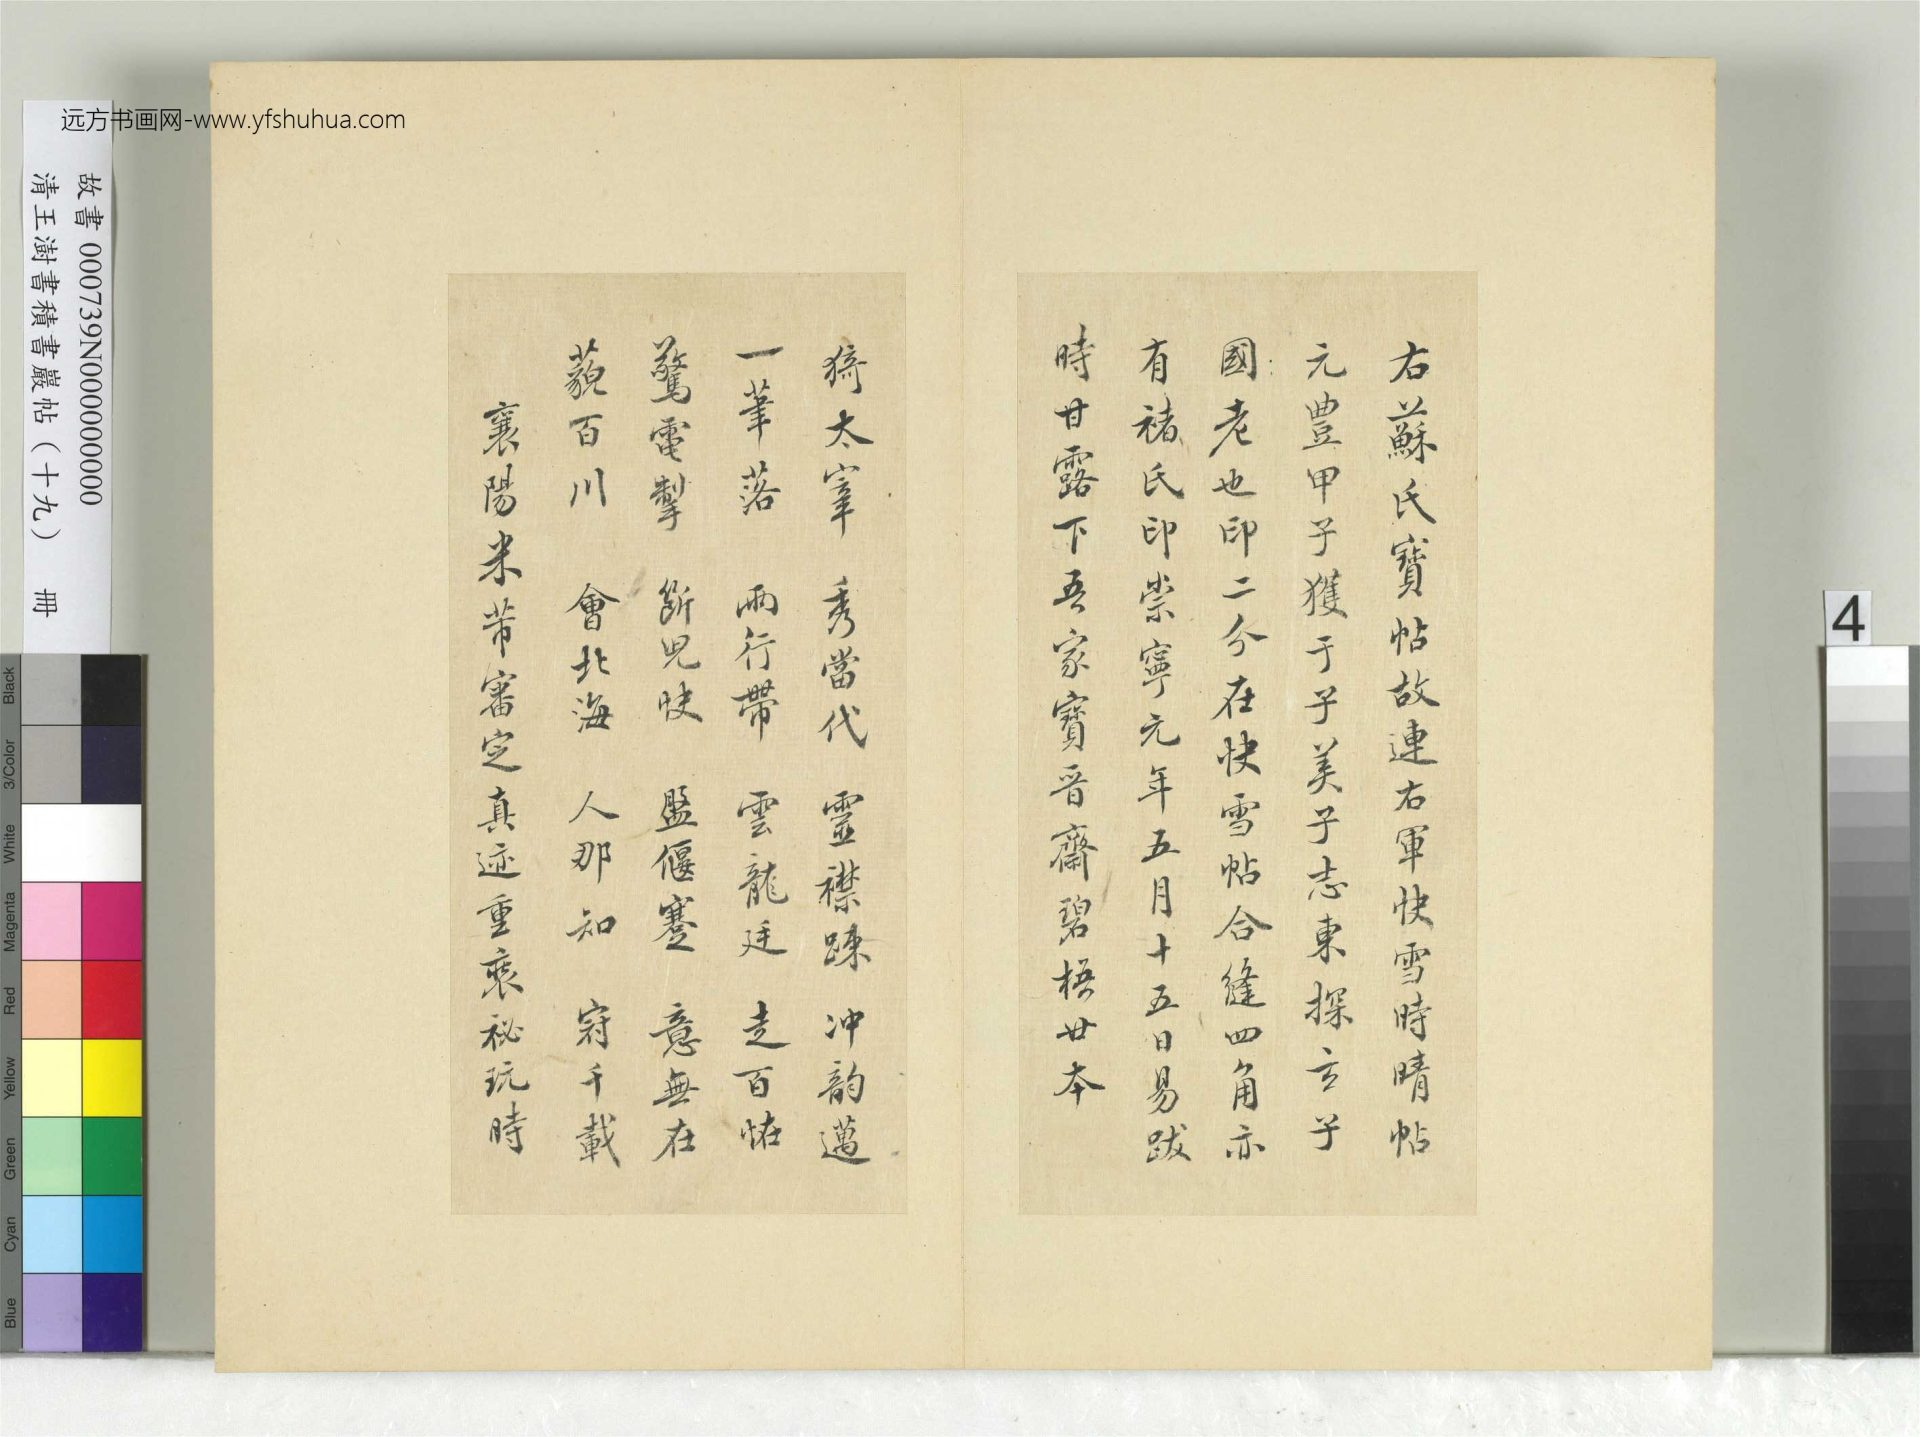 远方书画网-www.yfshuhua.com
故書 000739N000000000
清王澍書積書巖帖（十九） 冊
右蘇氏寶帖故連右軍快雪時晴帖
元豊甲子獲于子美子志東探玄子
國老也印二分在快雪帖合縫四角亦
有褚氏印崇寧元年五月十五日易跋
時甘露下吾家寶晉齋碧梧廿本
猗太宰 秀當代 靈襟踈 沖韵邁
一筆落 兩行帶 雲龍廷 走百恠
驚電掣 斷兕快 盬偃蹇 意無在
藐百川 會北海 人那知 冠千載
襄陽米芾審定真迹重裝祕玩時
4
Black
3/Color
White
Magenta
Red
Yellow
Green
Cyan
Blue